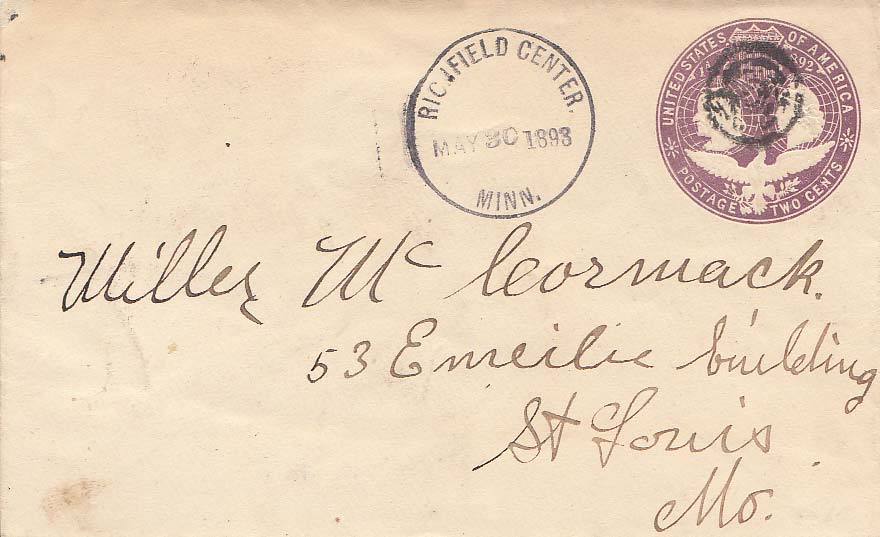 RICHFIELD CENTER,
MAY 30 1893
MINN.
UNITED STATES OF AMERICA
1492 1892
POSTAGE TWO CENTS
Miller Mc Cormack.
53 Emeilie building
St Louis
Mo.